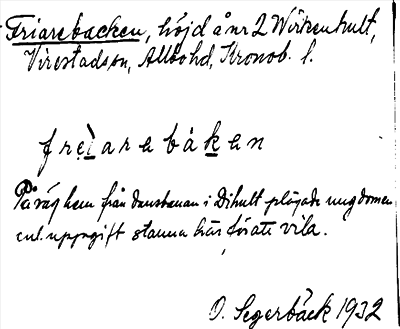 Friarebacken, höjd å nr 2 Wirkenhult,
Virestads sn, Allbo hd, Kronob. l.
frei̱areba̱ḵen
På väg hem från dansbanan i Dihult plägade ungdomen
enl. uppgift stanna här för att vila.
O. Segerbäck 1932